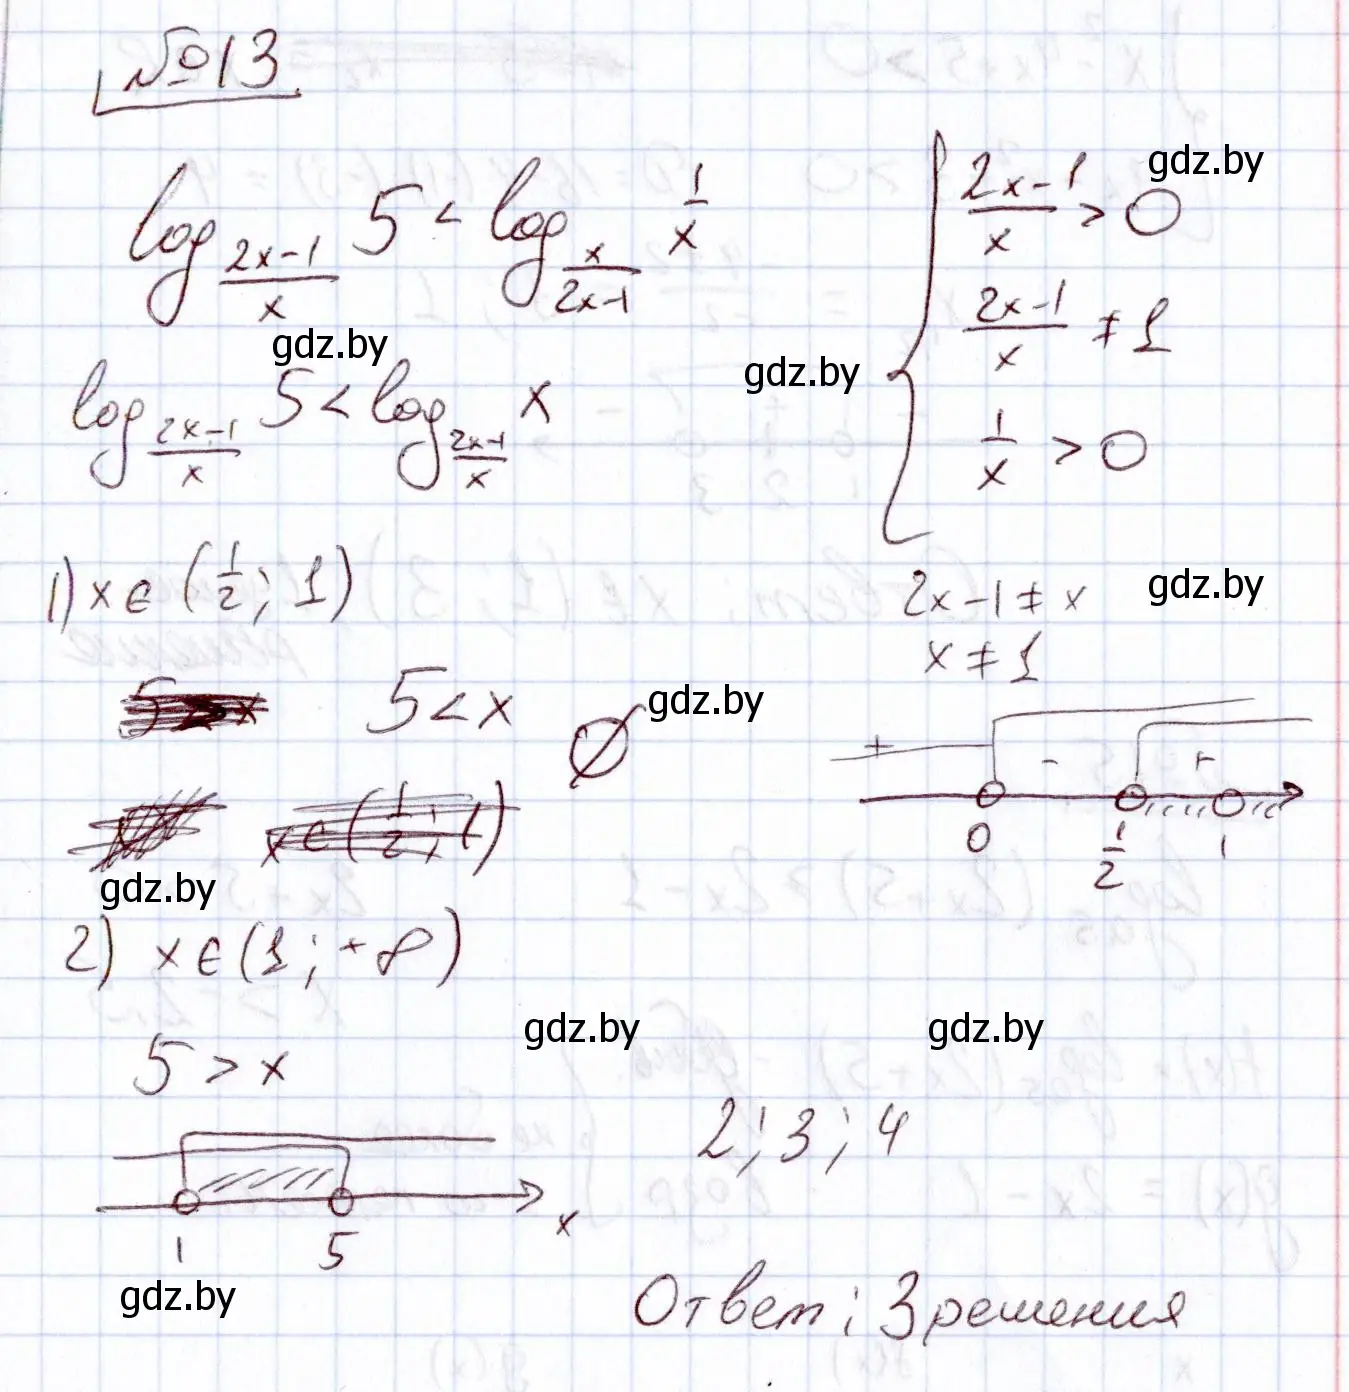 №13
log_{\frac{2x-1}{x}} 5 < log_{\frac{x}{2x-1}} \frac{1}{x}
\frac{2x-1}{x} > 0
gdz.by
gdz.by
gdz.by
\frac{2x-1}{x} ≠ 1
log_{\frac{2x-1}{x}} 5 < log_{\frac{2x-1}{x}} x
\frac{1}{x} > 0
1) x ∈ (\frac{1}{2}; 1)
2x-1 ≠ x
gdz.by
x ≠ 1
5 < x ∅
gdz.by
+ - +
0 \frac{1}{2} 1
x ∈ (\frac{1}{2}; 1)
gdz.by
2) x ∈ (1; +∞)
gdz.by
gdz.by
5 > x
2; 3; 4
1 5 x
gdz.by
Ответ: 3 решения